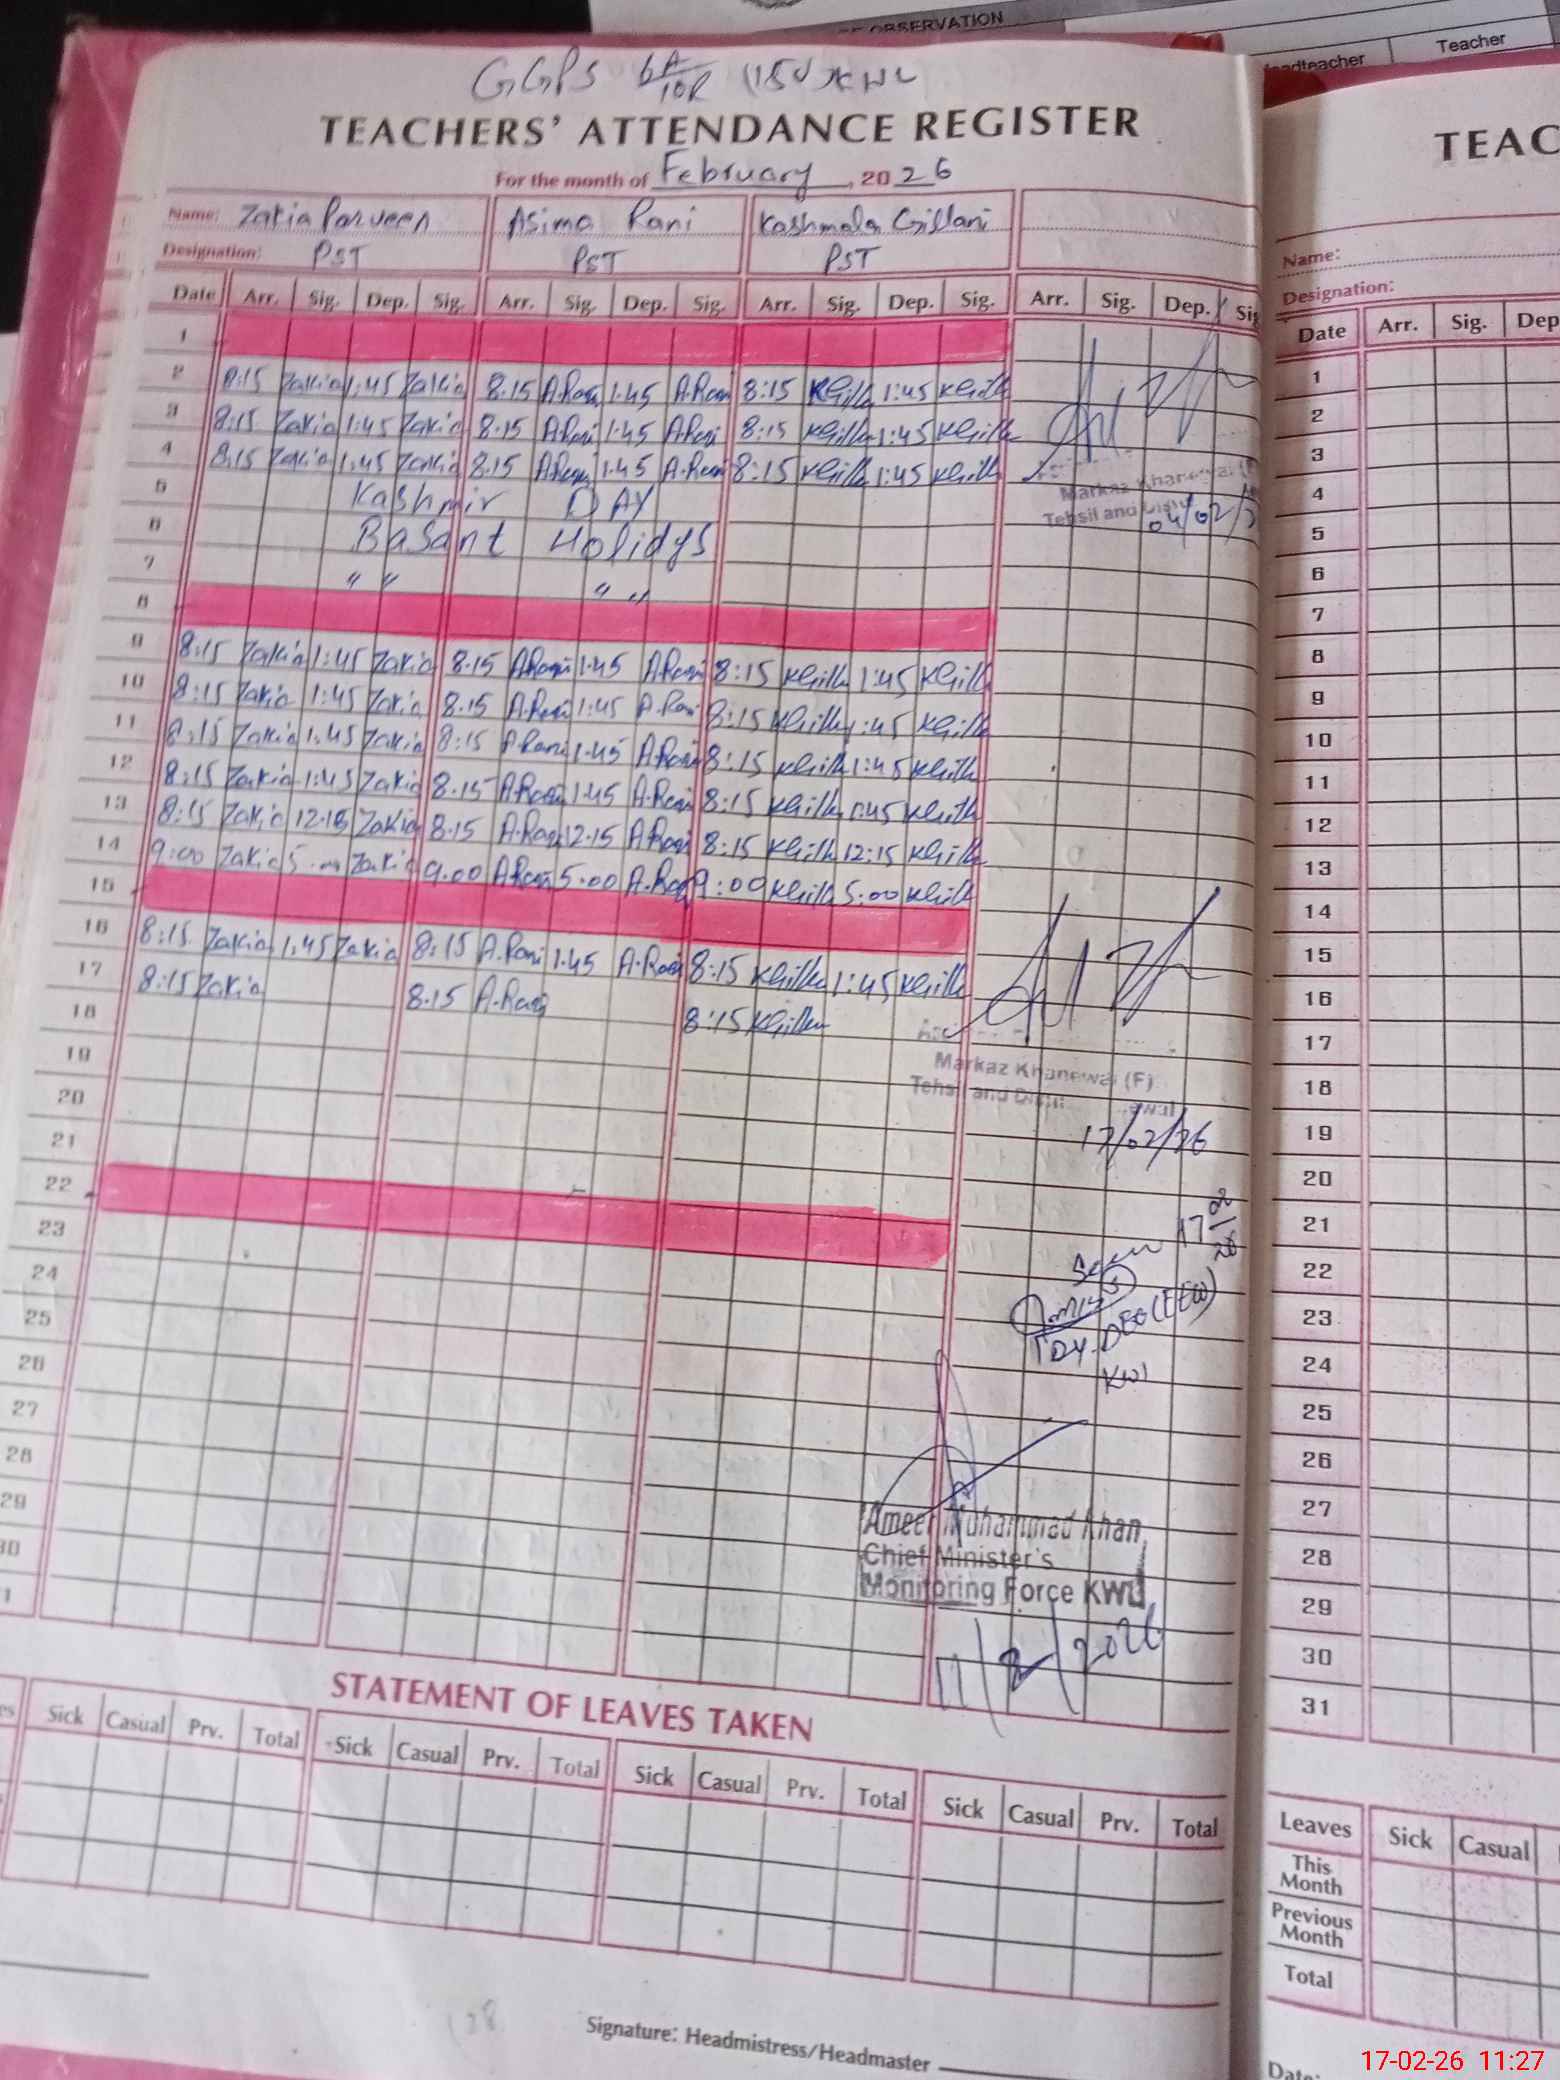 OBSERVATION
Headteacher Teacher
GGPS 6A/10R (15V) KWL
TEACHERS' ATTENDANCE REGISTER
For the month of February, 2026
Name: Zakia Parveen Asima Rani Kashmala Gillani
Designation: PST PST PST
Date Arr. Sig. Dep. Sig. Arr. Sig. Dep. Sig. Arr. Sig. Dep. Sig. Arr. Sig. Dep. Sig
1
2 8:15 Zakia 1:45 Zakia 8.15 A.Rani 1.45 A.Rani 8:15 KGilln 1:45 KGilln
3 8:15 Zakia 1:45 Zakia 8.15 A.Rani 1.45 A.Rani 8:15 KGilln 1:45 KGilln
4 8:15 Zakia 1:45 Zakia 8.15 A.Rani 1.45 A.Rani 8:15 KGilln 1:45 KGilln
5 Kashmir DAY
6 Basant Holidys
7 " " " "
8
Markaz Khanewal (F)
Tehsil and
04/02/2
9 8:15 Zakia 1:45 Zakia 8.15 A.Rani 1.45 A.Rani 8:15 KGilln 1:45 KGilln
10 8:15 Zakia 1:45 Zakia 8.15 A.Rani 1:45 A.Rani 8:15 KGilln 1:45 KGilln
11 8:15 Zakia 1:45 Zakia 8:15 A.Rani 1.45 A.Rani 8:15 KGilln 1:45 KGilln
12 8:15 Zakia 1:45 Zakia 8.15 A.Rani 1.45 A.Rani 8:15 KGilln 1:45 KGilln
13 8:15 Zakia 12.15 Zakia 8.15 A.Rani 12.15 A.Rani 8:15 KGilln 12:15 KGilln
14 9:00 Zakia 5.00 Zakia 9.00 A.Rani 5.00 A.Rani 9:00 KGilln 5:00 KGilln
15
16 8:15 Zakia 1:45 Zakia 8:15 A.Rani 1.45 A.Rani 8:15 KGilln 1:45 KGilln
17 8:15 Zakia 8.15 A.Rani 8:15 KGilln
18
19
20
21
22
23
24
25
26
27
28
29
30
1
Markaz Khanewal (F)
Tehsil and
17/02/26
Seen 17/02/26
DY.DEO (EEW)
KWl
Ameer Muhammad Khan
Chief Minister's
Monitoring Force KWL
17/2/2026
STATEMENT OF LEAVES TAKEN
es Sick Casual Prv. Total Sick Casual Prv. Total Sick Casual Prv. Total Sick Casual Prv. Total
Signature: Headmistress/Headmaster
TEAC
Name:
Designation:
Date Arr. Sig. Dep
1
2
3
4
5
6
7
8
9
10
11
12
13
14
15
16
17
18
19
20
21
22
23
24
25
26
27
28
29
30
31
Leaves Sick Casual
This Month
Previous Month
Total
Date:
17-02-26 11:27